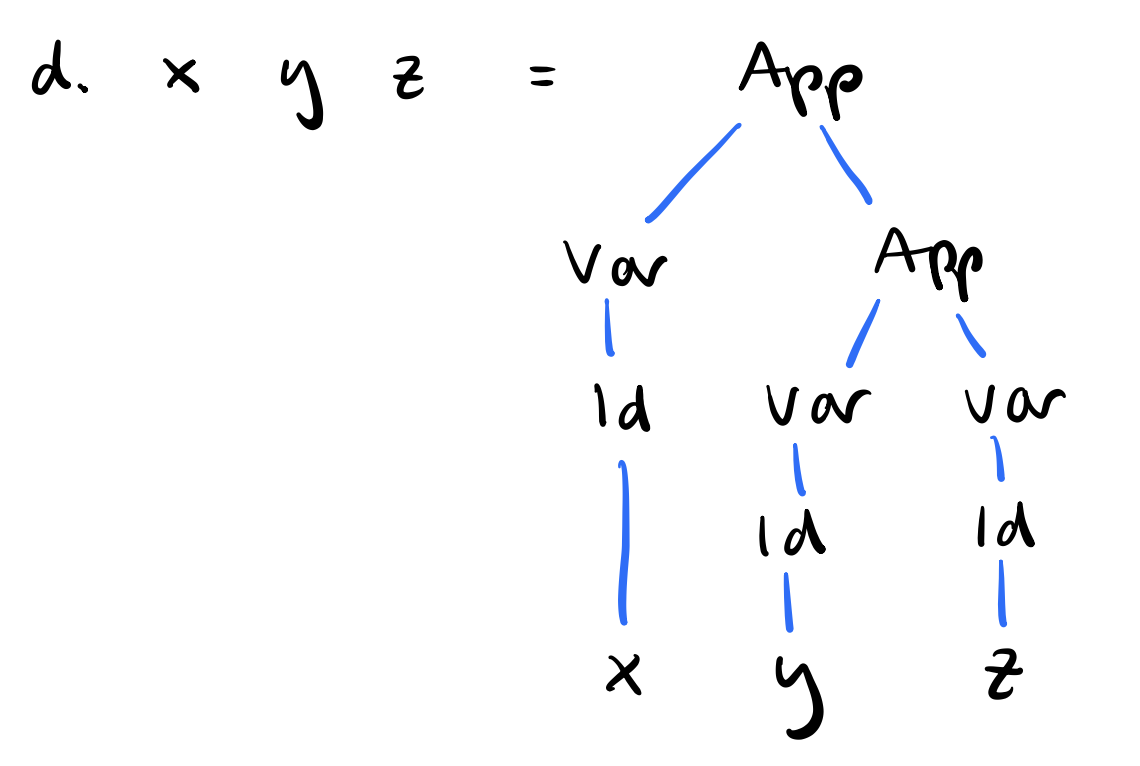 d. x y z = App
Var App
Id Var Var
Id Id
x y z